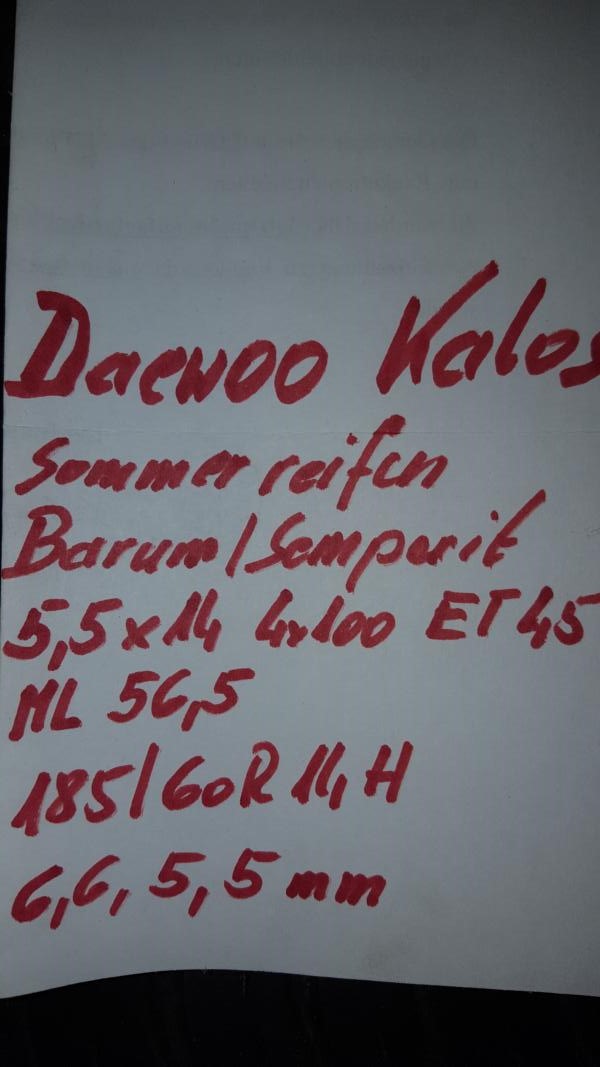 Daewoo Kalos
Sommerreifen
Barum/Semperit
5,5x14 4x100 ET45
ML 56,5
185/60R 14 H
6,6,5,5 mm